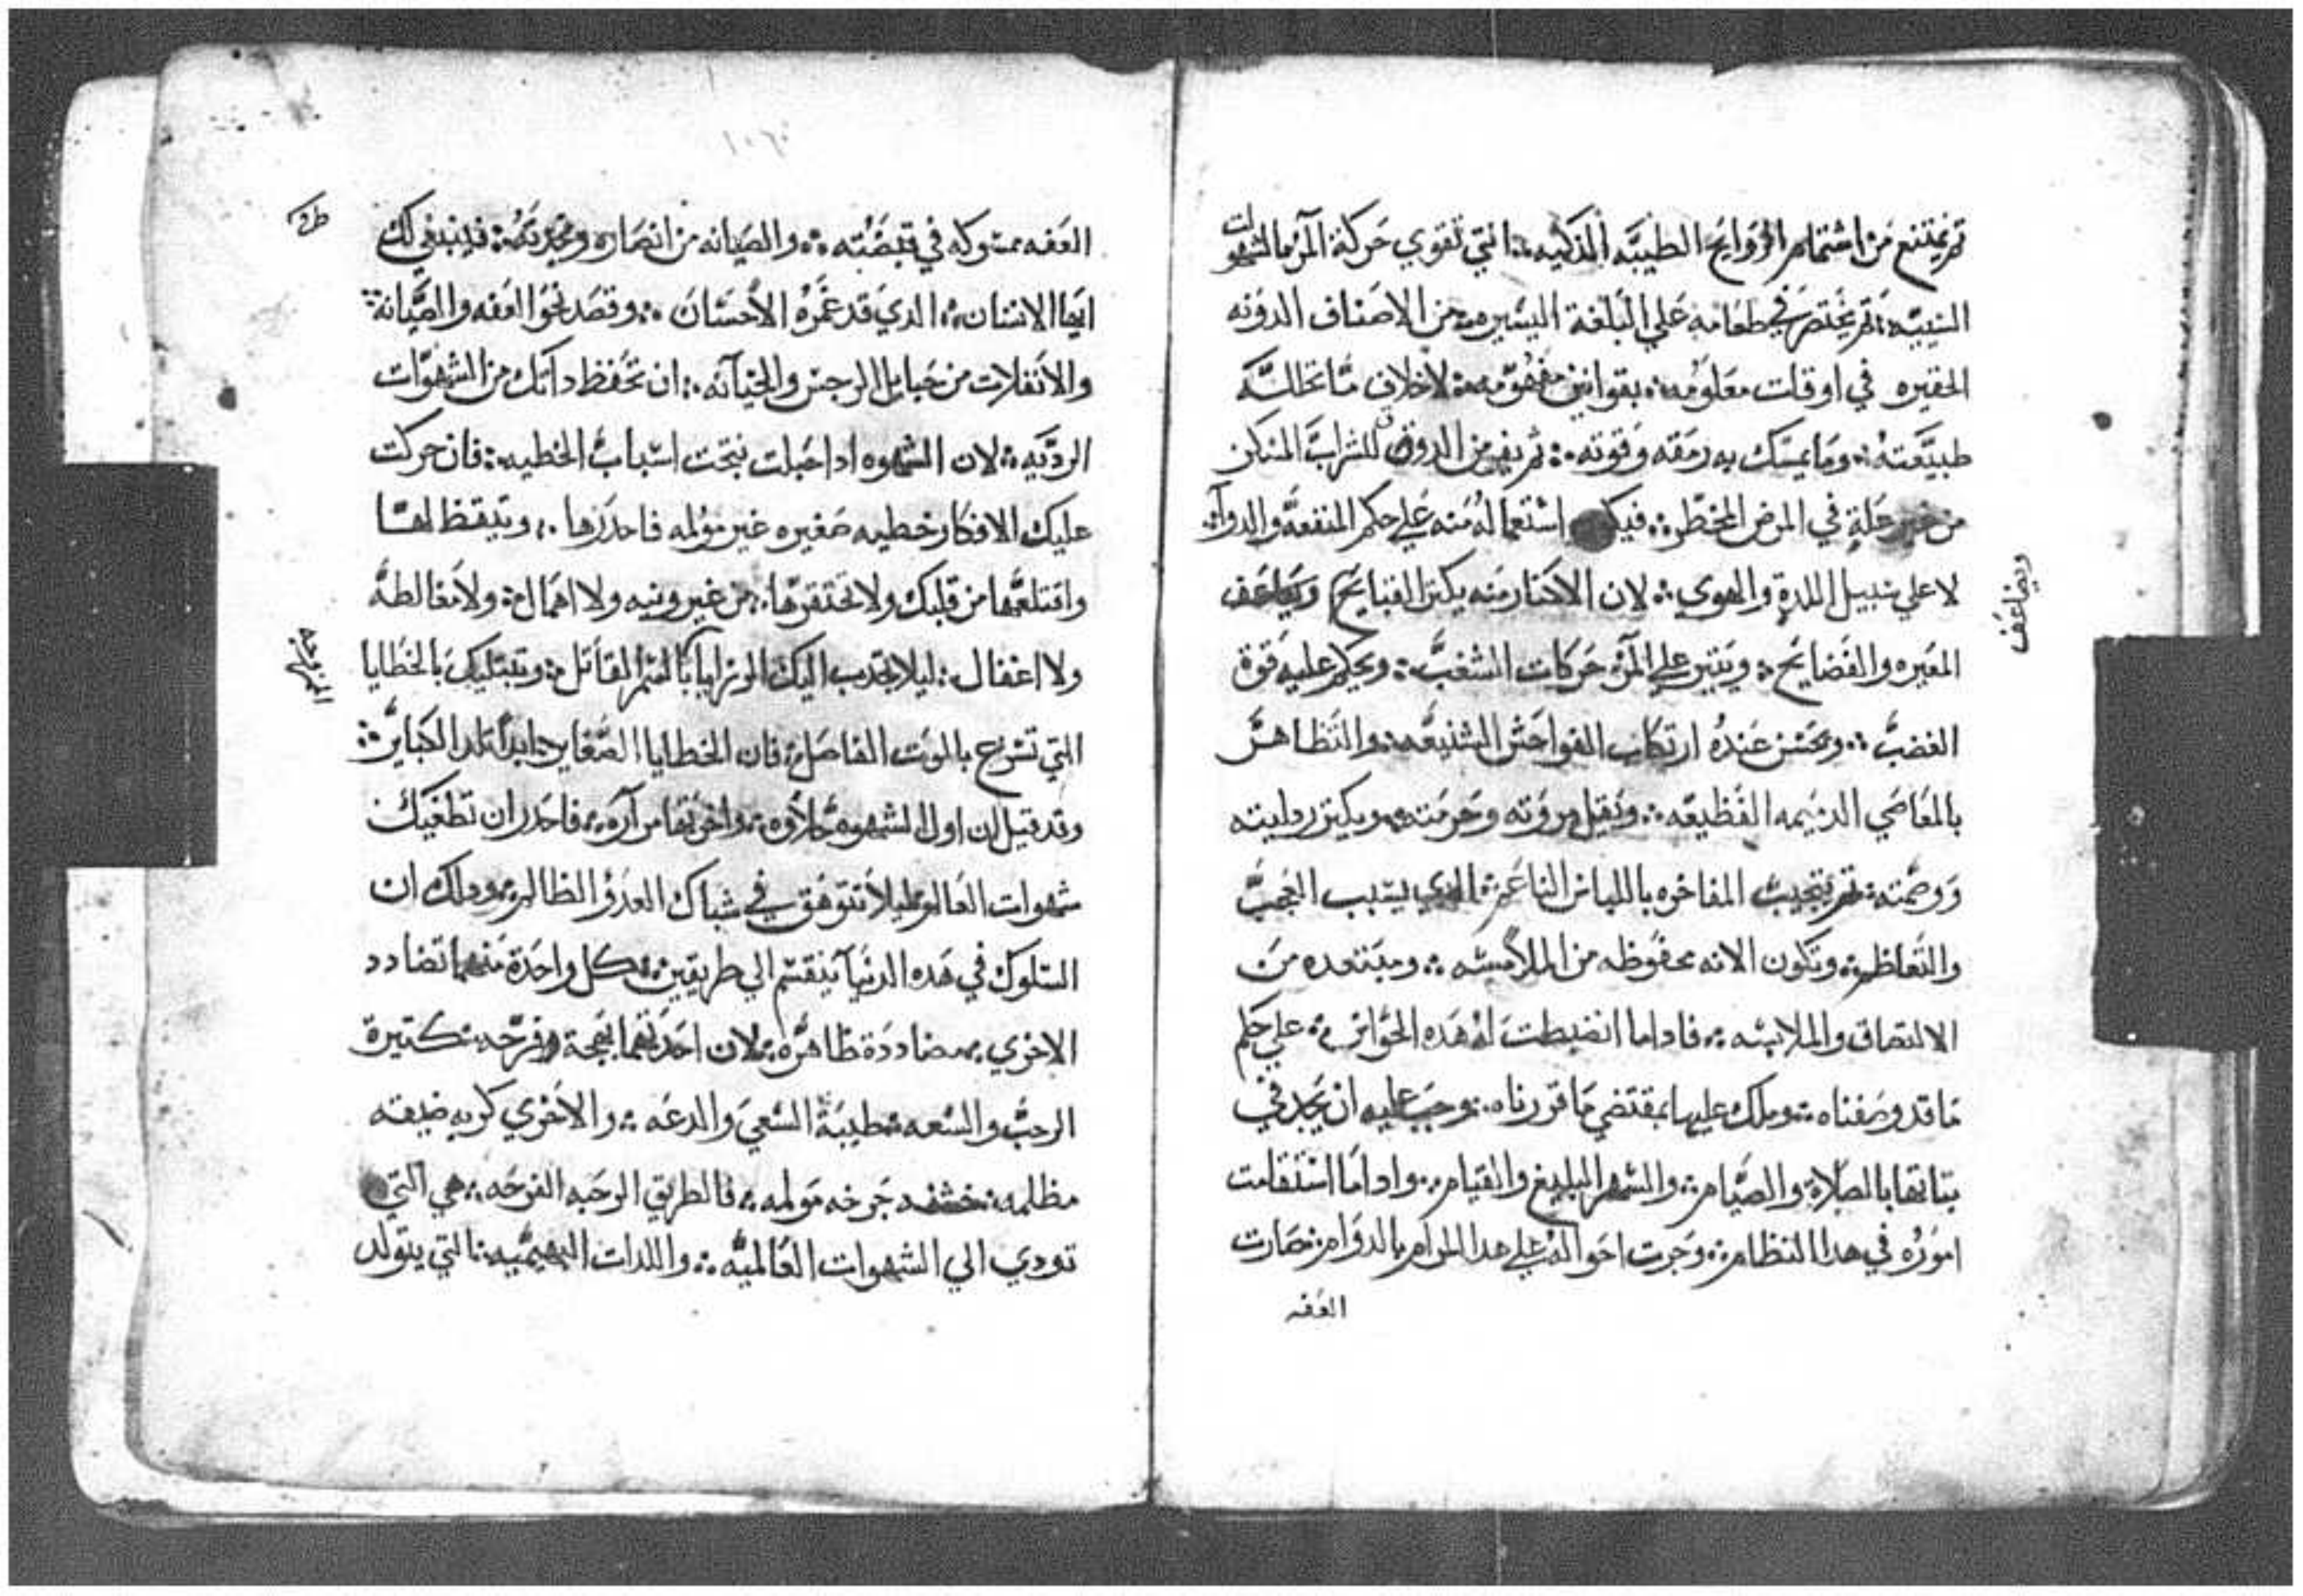 ثم يمتنع من اشتمام الروايح الطيبه الذكيه التي تقوي حركة المرء بالشهوات
ثم يختصر في طعامه علي البلغة اليسيره من الاصناف الدونه
الحقيره في اوقات معلومه بقوانين مفهومه لاخلاف
طبيعته وما يمسك به رمقه وقوته ثم يفر من الدوق للشراب المسكر
من غير علة في المرض المخطر استعماله منه علي حكم المنفعه والدوآ
لا علي سبيل اللدة والهوي لان الاكثار منه يكثر القبايح
ويضاعف
المعيره والفضايح علي المرء حركات الشغب ويحكم عليه قوة
الغضب ويحسن عنده ارتكاب الفواحش الشنيعه والتظاهر
بالمعاصي الدميمه الفظيعه ويقل مروته وحرمته ويكثر
ووصمته ثم يتجنب المفاخره باللباس الناعم الدي يسبب العجب
والتعاظم وتكون الاته محفوظه من الملامسه ومبتعده من
الالتصاق والملابسه فاداما انضبطت له هده الحواس علي حكم
ما قد وصفناه وملك عليها بمقتضي ما قررناه وجب عليه ان يجد في
بالصلاة والصيام والسهر البليغ والقيام واداما استقامت
اموره في هدا النظام وجرت احواله علي هدا المرام بالدوام صارت
العفه
العفه متروكه في قبضته والصيانه من انصاره فينبغي لك
ايها الانسان الدي قد غمره الاحسان وقصد نحو العفه والصيانة
والانفلات من حبايل الرجس والخيانه ان تحفظ داتك من الشهوات
الرديه لان الشهوه ادا حبلت نتجت اسباب الخطيه فان حركت
عليك الافكار خطيه صغيره غير مؤلمه فاحدرها وتيقظ لها
واقتلعها من قلبك ولا تحتقرها من غير ونيه ولا اهمال ولا مغالطه
ولا اغفال ليلا تجدب اليك الرزايا بالسم القاتل وتبتليك بالخطايا
التي تسرع بالموت الفاصل فان الخطايا الصغاير ابدا تلد الكباير
وقد قيل ان اول الشهوه حلاوه واخرتها مراره فاحدر ان تطغيك
شهوات العالم ليلا تتوهق في شباك العدو الظالم ودلك ان
السلوك في هده الدنيا ينقسم الي طريقين كل واحدة منهما تضادد
الاخري مضاددة ظاهره لان احدتهما بهجة وفرحه كتيرة
الرحب والسعه طيبة السعي والدعه والاخري كربه ضيقه
مظلمه خشنه مولمه فالطريق الرحبه الفرحه هي التي
تودي الي الشهوات العالميه واللدات البهيميه التي يتولد